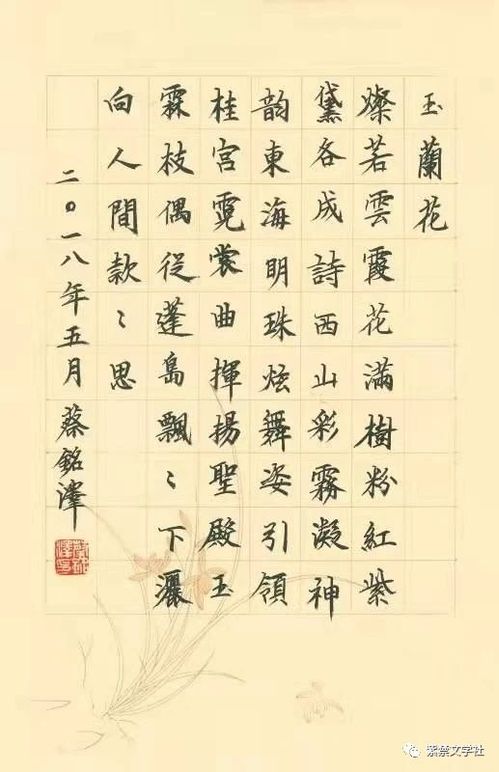 玉蘭花
燦若雲霞花滿樹粉紅紫
黛各成詩西山彩霧凝神
韵東海明珠炫舞姿引領
桂宮霓裳曲揮揚聖殿玉
霖枝偶從蓬島飄〻下灑
向人間款〻思
二〇一八年五月 蔡銘澤
紫荆文学社